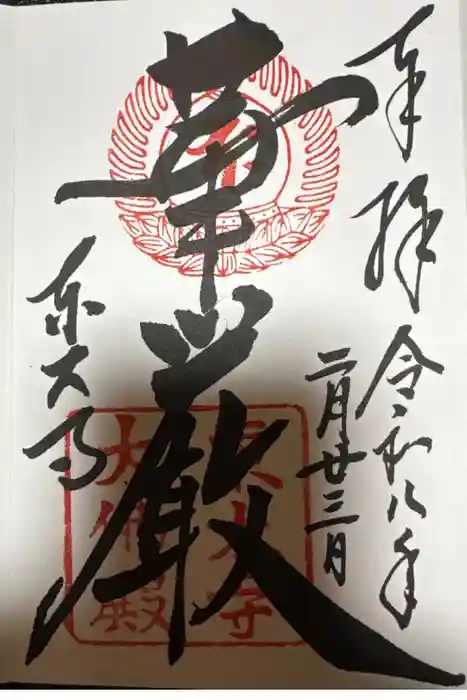 奉拝
令和八年
二月廿三日
華厳
東大寺
東大寺
大佛殿